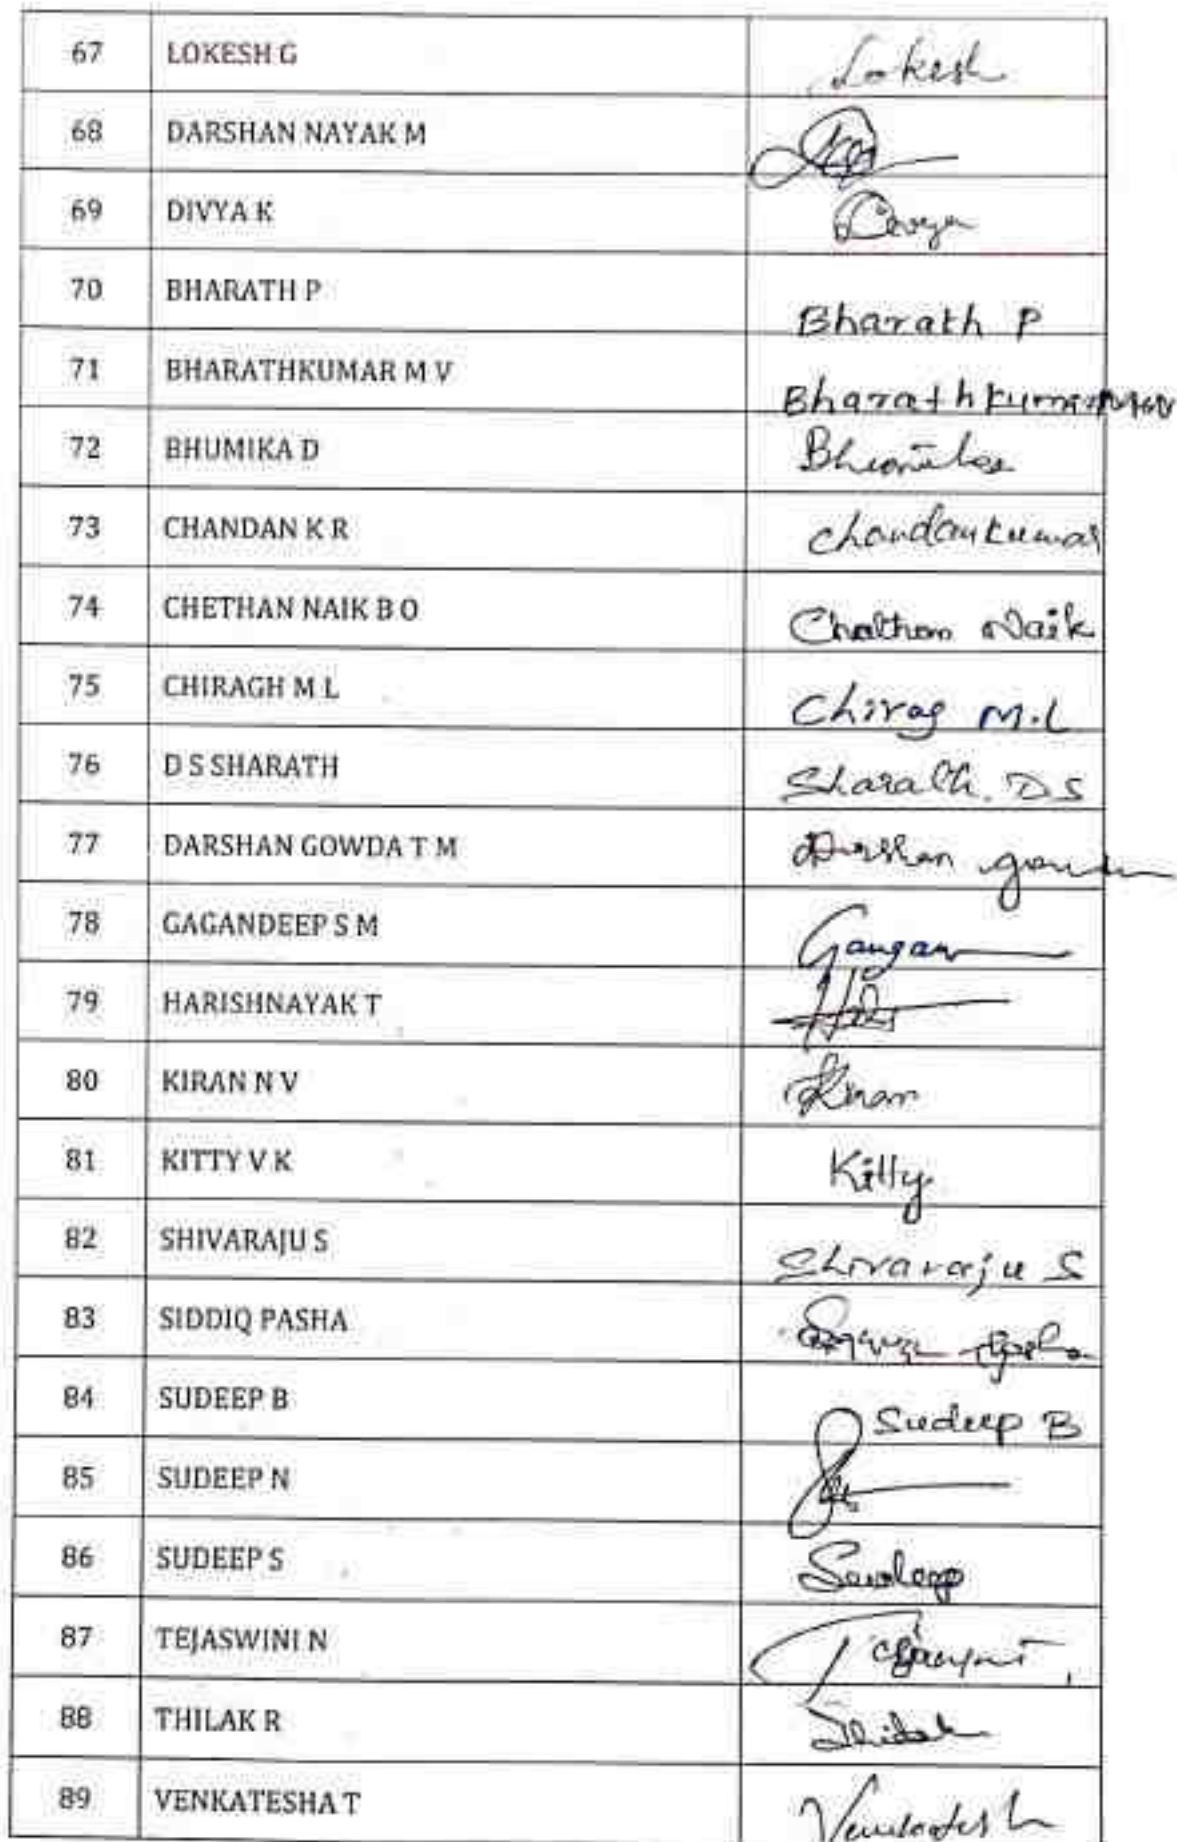 67 LOKESH G Lokesh
68 DARSHAN NAYAK M
69 DIVYA K Divya
70 BHARATH P Bharath P
71 BHARATHKUMAR M V Bharathkumar MV
72 BHUMIKA D Bhumika
73 CHANDAN K R Chandankumar
74 CHETHAN NAIK B O Chethan Naik
75 CHIRAGH M L Chirag M.L
76 D S SHARATH Sharath. D S
77 DARSHAN GOWDA T M Darshan gowda
78 GAGANDEEP S M Gangan
79 HARISHNAYAK T
80 KIRAN N V Kiran
81 KITTY V K Kitty
82 SHIVARAJU S Shivaraju S
83 SIDDIQ PASHA
84 SUDEEP B Sudeep B
85 SUDEEP N
86 SUDEEP S Sudeep
87 TEJASWINI N
88 THILAK R Thilak
89 VENKATESHA T Venkatesh